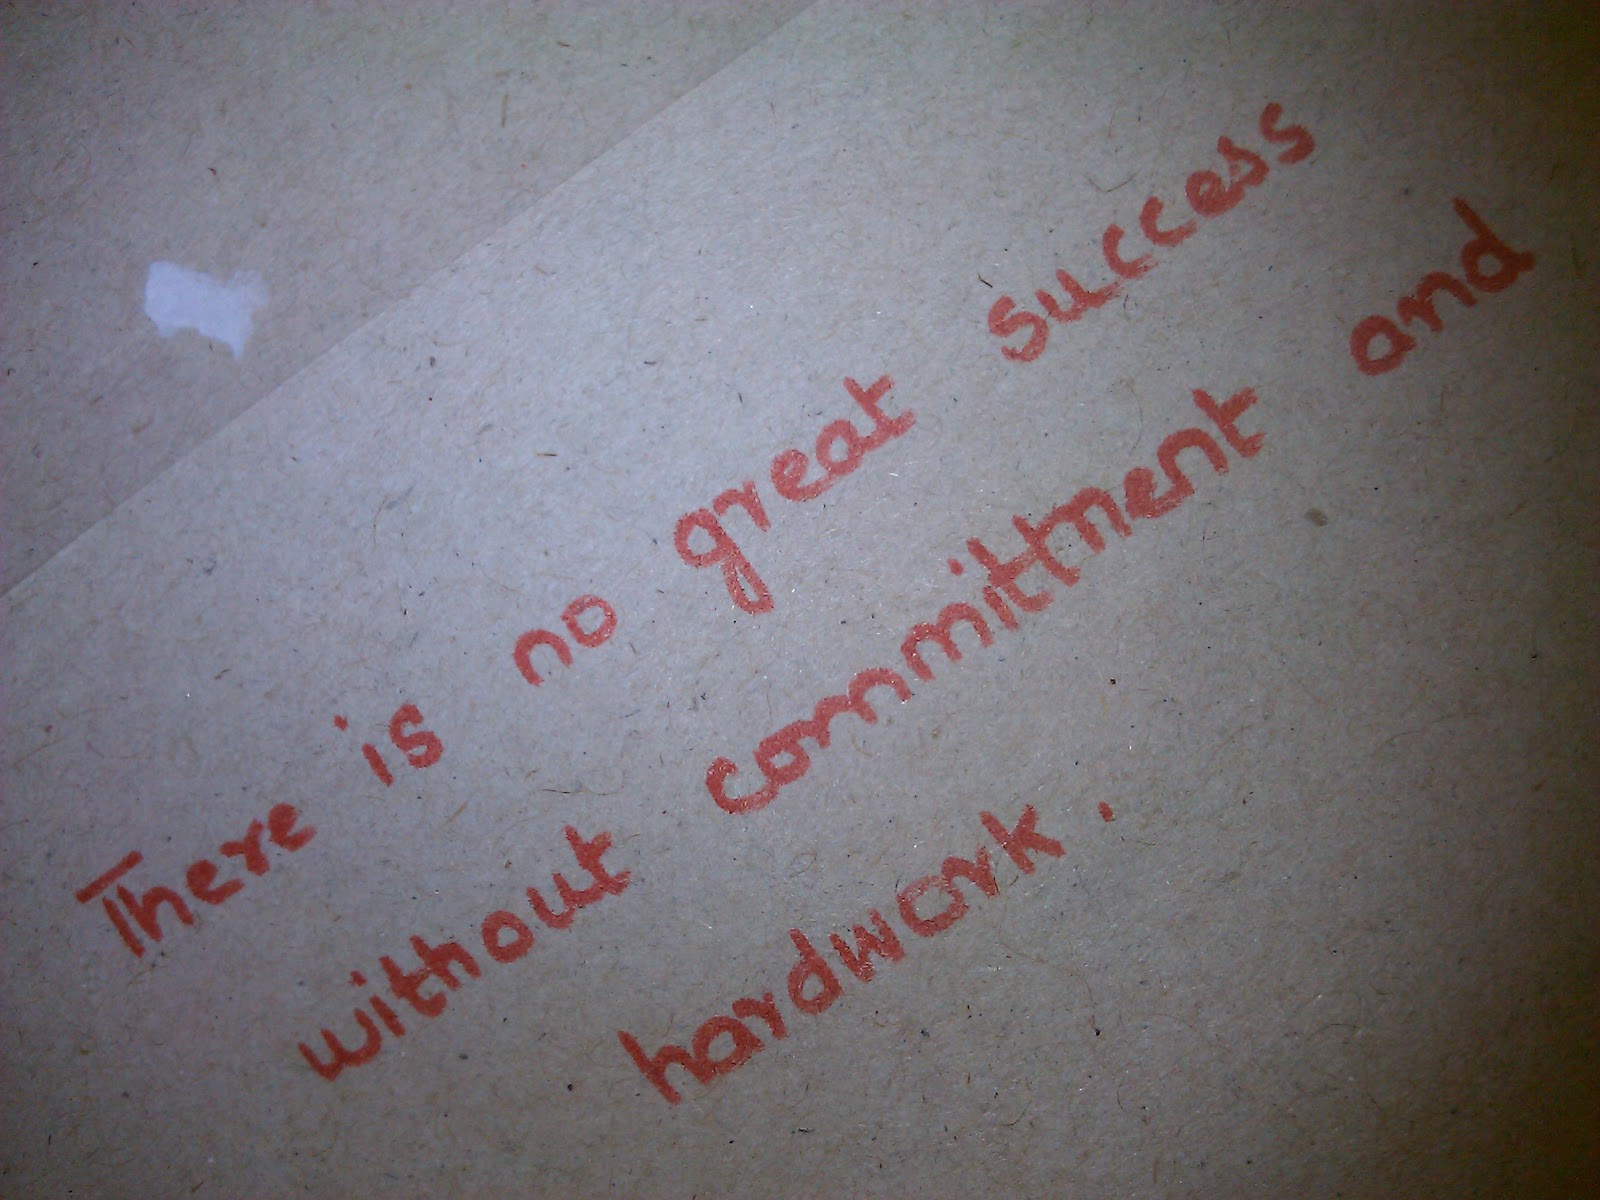 There is no great success
without committment and
hardwork.